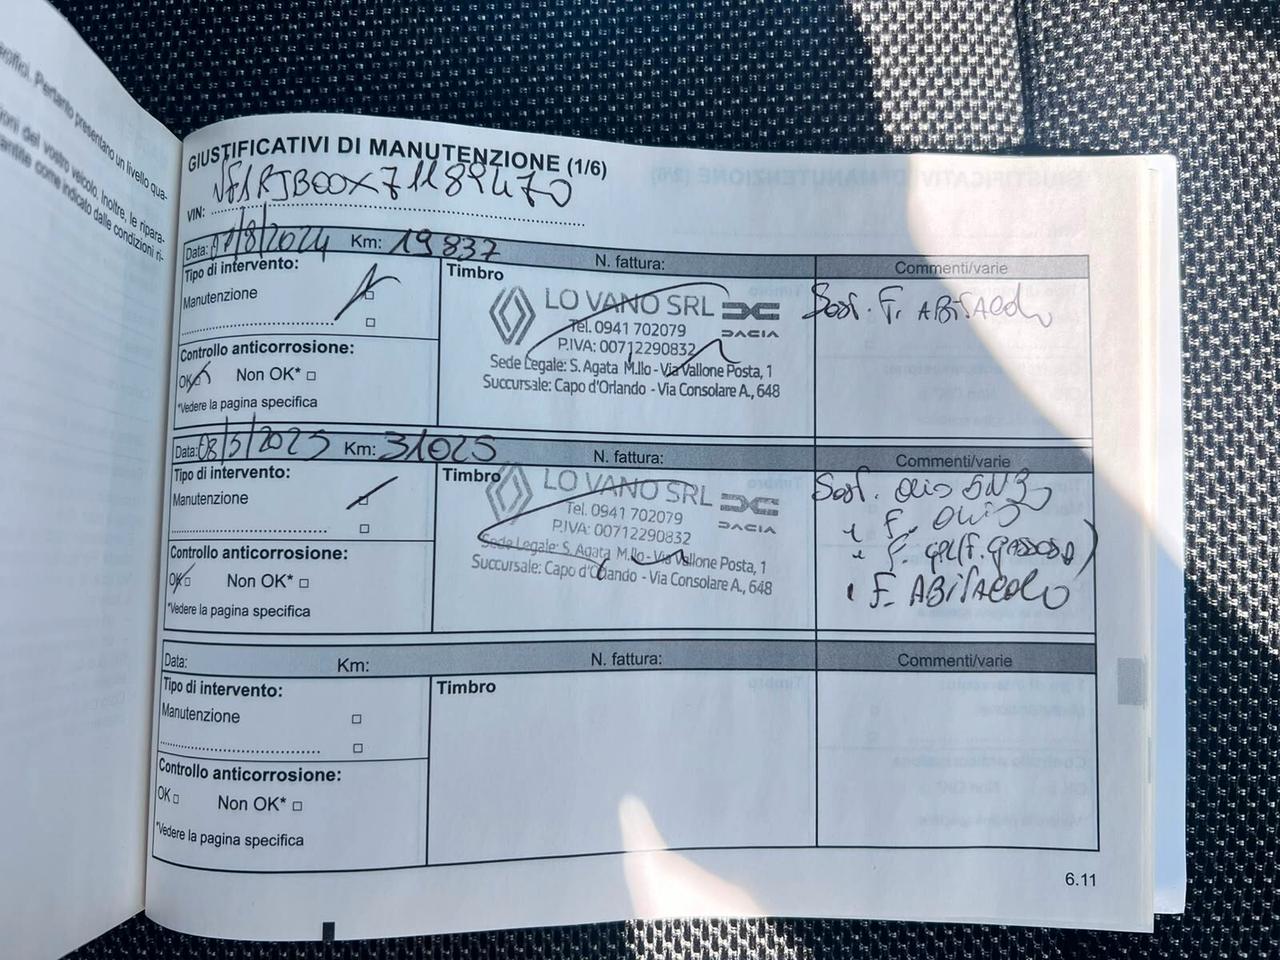 GIUSTIFICATIVI DI MANUTENZIONE (1/6)
VIN: VF1RJB00X71189470
Data: /8/2024 Km: 19837 N. fattura: Commenti/varie
Tipo di intervento:
Manutenzione
Controllo anticorrosione:
OK Non OK*
*Vedere la pagina specifica
Timbro
LO VANO SRL
Tel. 0941 702079
P.IVA: 00712290832
DACIA
Sede Legale: S. Agata M.llo - Via Vallone Posta, 1
Succursale: Capo d'Orlando - Via Consolare A., 648
Sost. F. ABITACOLO
Data: 08/5/2025 Km: 31025 N. fattura: Commenti/varie
Tipo di intervento:
Manutenzione
Controllo anticorrosione:
OK Non OK*
*Vedere la pagina specifica
Timbro
LO VANO SRL
Tel. 0941 702079
P.IVA: 00712290832
DACIA
Sede Legale: S. Agata M.llo - Via Vallone Posta, 1
Succursale: Capo d'Orlando - Via Consolare A., 648
Sost. OLIO
F. OLIO
F. GPL (F. GASSOSA)
F. ABITACOLO
Data: Km: N. fattura: Commenti/varie
Tipo di intervento:
Manutenzione
Controllo anticorrosione:
OK Non OK*
*Vedere la pagina specifica
Timbro
6.11
Pertanto presentano un livello qua-
del vostro veicolo. Inoltre, le ripara-
come indicato dalle condizioni ri-